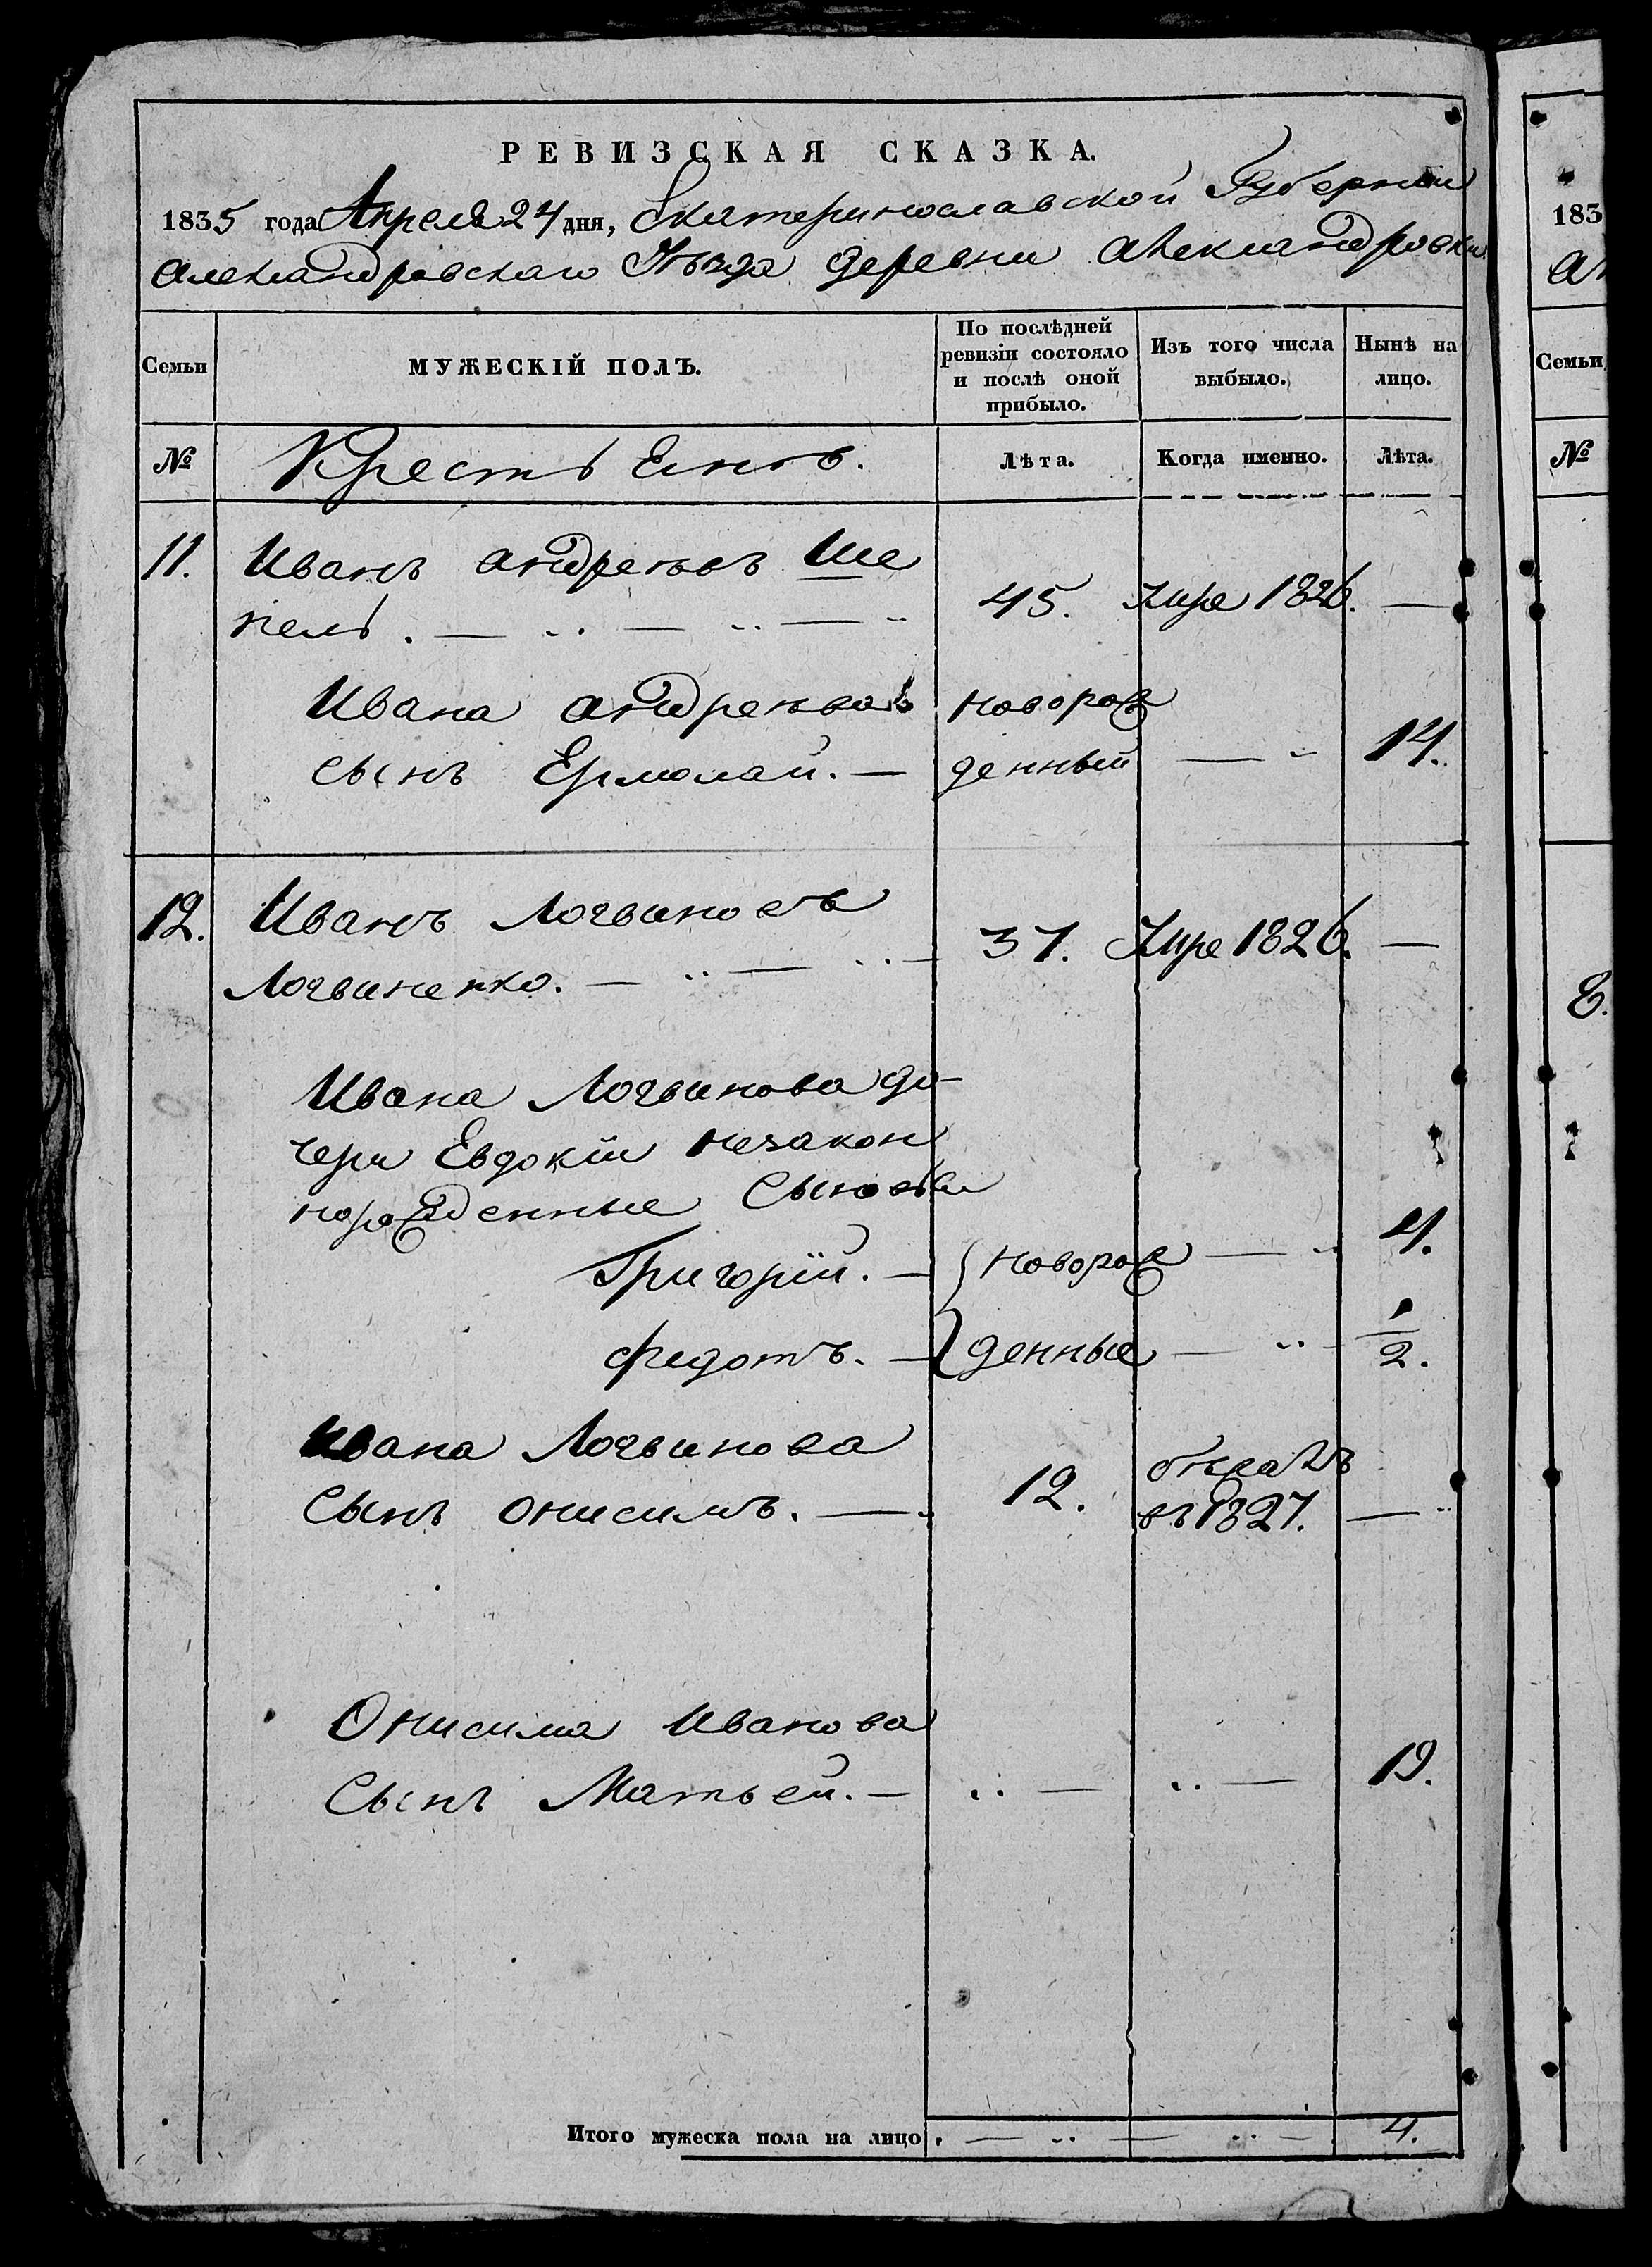 РЕВИЗСКАЯ СКАЗКА.
1835 года Апреля 24 дня, Екатеринославской Губернии
Александровскаго Уѣзда деревни Александровки
Семьи
МУЖЕСКІЙ ПОЛЪ.
По послѣдней ревизіи состояло и послѣ оной прибыло.
Изъ того числа выбыло.
Нынѣ на лицо.
№
Крестьянъ.
Лѣта.
Когда именно.
Лѣта.
11. Иванъ Андреевъ Ше
пель. 45. Умре 1826. —
Ивана Андреева новорож
сынъ Ермолай. — денный — 14.
12. Иванъ Логвиновъ
Логвиненко. — 37. Умре 1826. —
Ивана Логвинова до-
чери Евдокіи незакон
норожденные Сыновьи
Григорій. — новорож — 4.
Федотъ. — денные — 1/2.
Ивана Логвинова
Сынъ Онисимъ. — 12. въ 1827. —
Онисима Иванова
Сынъ Матвей. — — — 19.
Итого мужеска пола на лицо. — — 4.
183
Семьи
№
8.